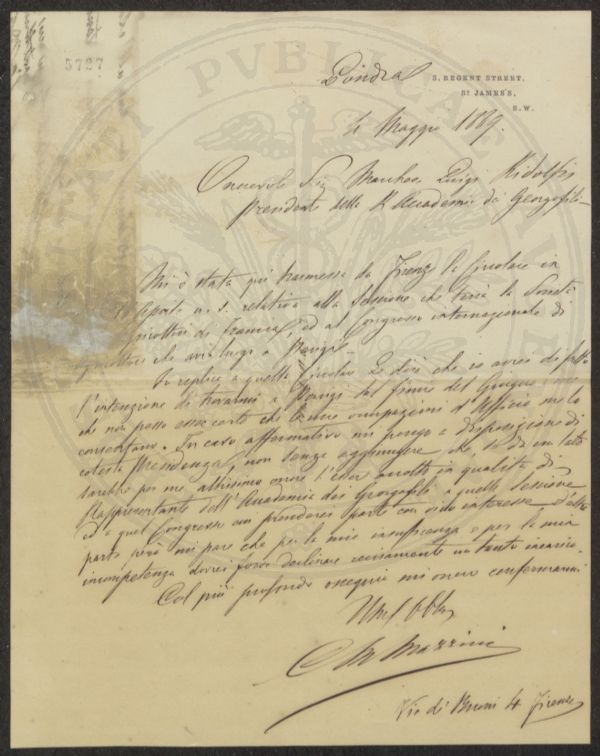 5727
Londra
5, REGENT STREET,
ST JAMES'S,
S.W.
4 Maggio 1889.
Onorevole Sig. Marchese Luigi Ridolfi
Presidente della R. Accademia dei Georgofili
Mi è stata qui trasmessa da Firenze la Circolare in
relativa alla Sessione che terrà la Società
di Francia, ed al Congresso internazionale di
che avrà luogo a Parigi.
In replica a quella Circolare Le dirò che io avrei di fatto
l'intenzione di trovarmi a Parigi sul finire del Giugno; ma
che non posso esser certo che le mie occupazioni d'Ufficio me lo
consentano. In caso affermativo mi pongo a disposizione di
cotesta Presidenza, non senza aggiungere che, se da un lato
sarebbe per me altissimo onore l'esser accolto in qualità di
Rappresentante dell'Accademia dei Georgofili a quella Sessione
ed a quel Congresso con prendervi parte con vivo interesse, d'altra
parte però mi pare che per la mia insufficienza e per la mia
incompetenza dovrei forse declinare recisamente un tanto incarico.
Col più profondo ossequio mi onoro confermarmi
C M Mazzini
Via de' Benci 4 Firenze
PVBLICAE